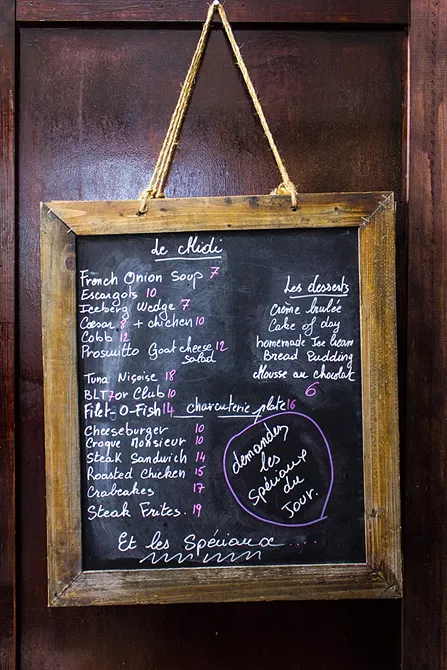 Le Midi
French Onion Soup 7
Escargots 10
Iceberg Wedge 7
Cæsar 8 + chicken 10
Cobb 12
Prosuitto Goat cheese 12
Salad
Tuna Niçoise 18
BLT 7 or Club 10
Filet-O-Fish 14
charcuterie plate 16
Cheeseburger 10
Croque Monsieur 10
Steak Sandwich 14
Roasted Chicken 15
Crabcakes 17
Steak Frites. 19
Les desserts
Crème brulée
Cake of day
homemade Ice cream
Bread Pudding
Mousse au chocolat
6
demandez
les
Spéciaux
du
Jour.
Et les Spéciaux ....